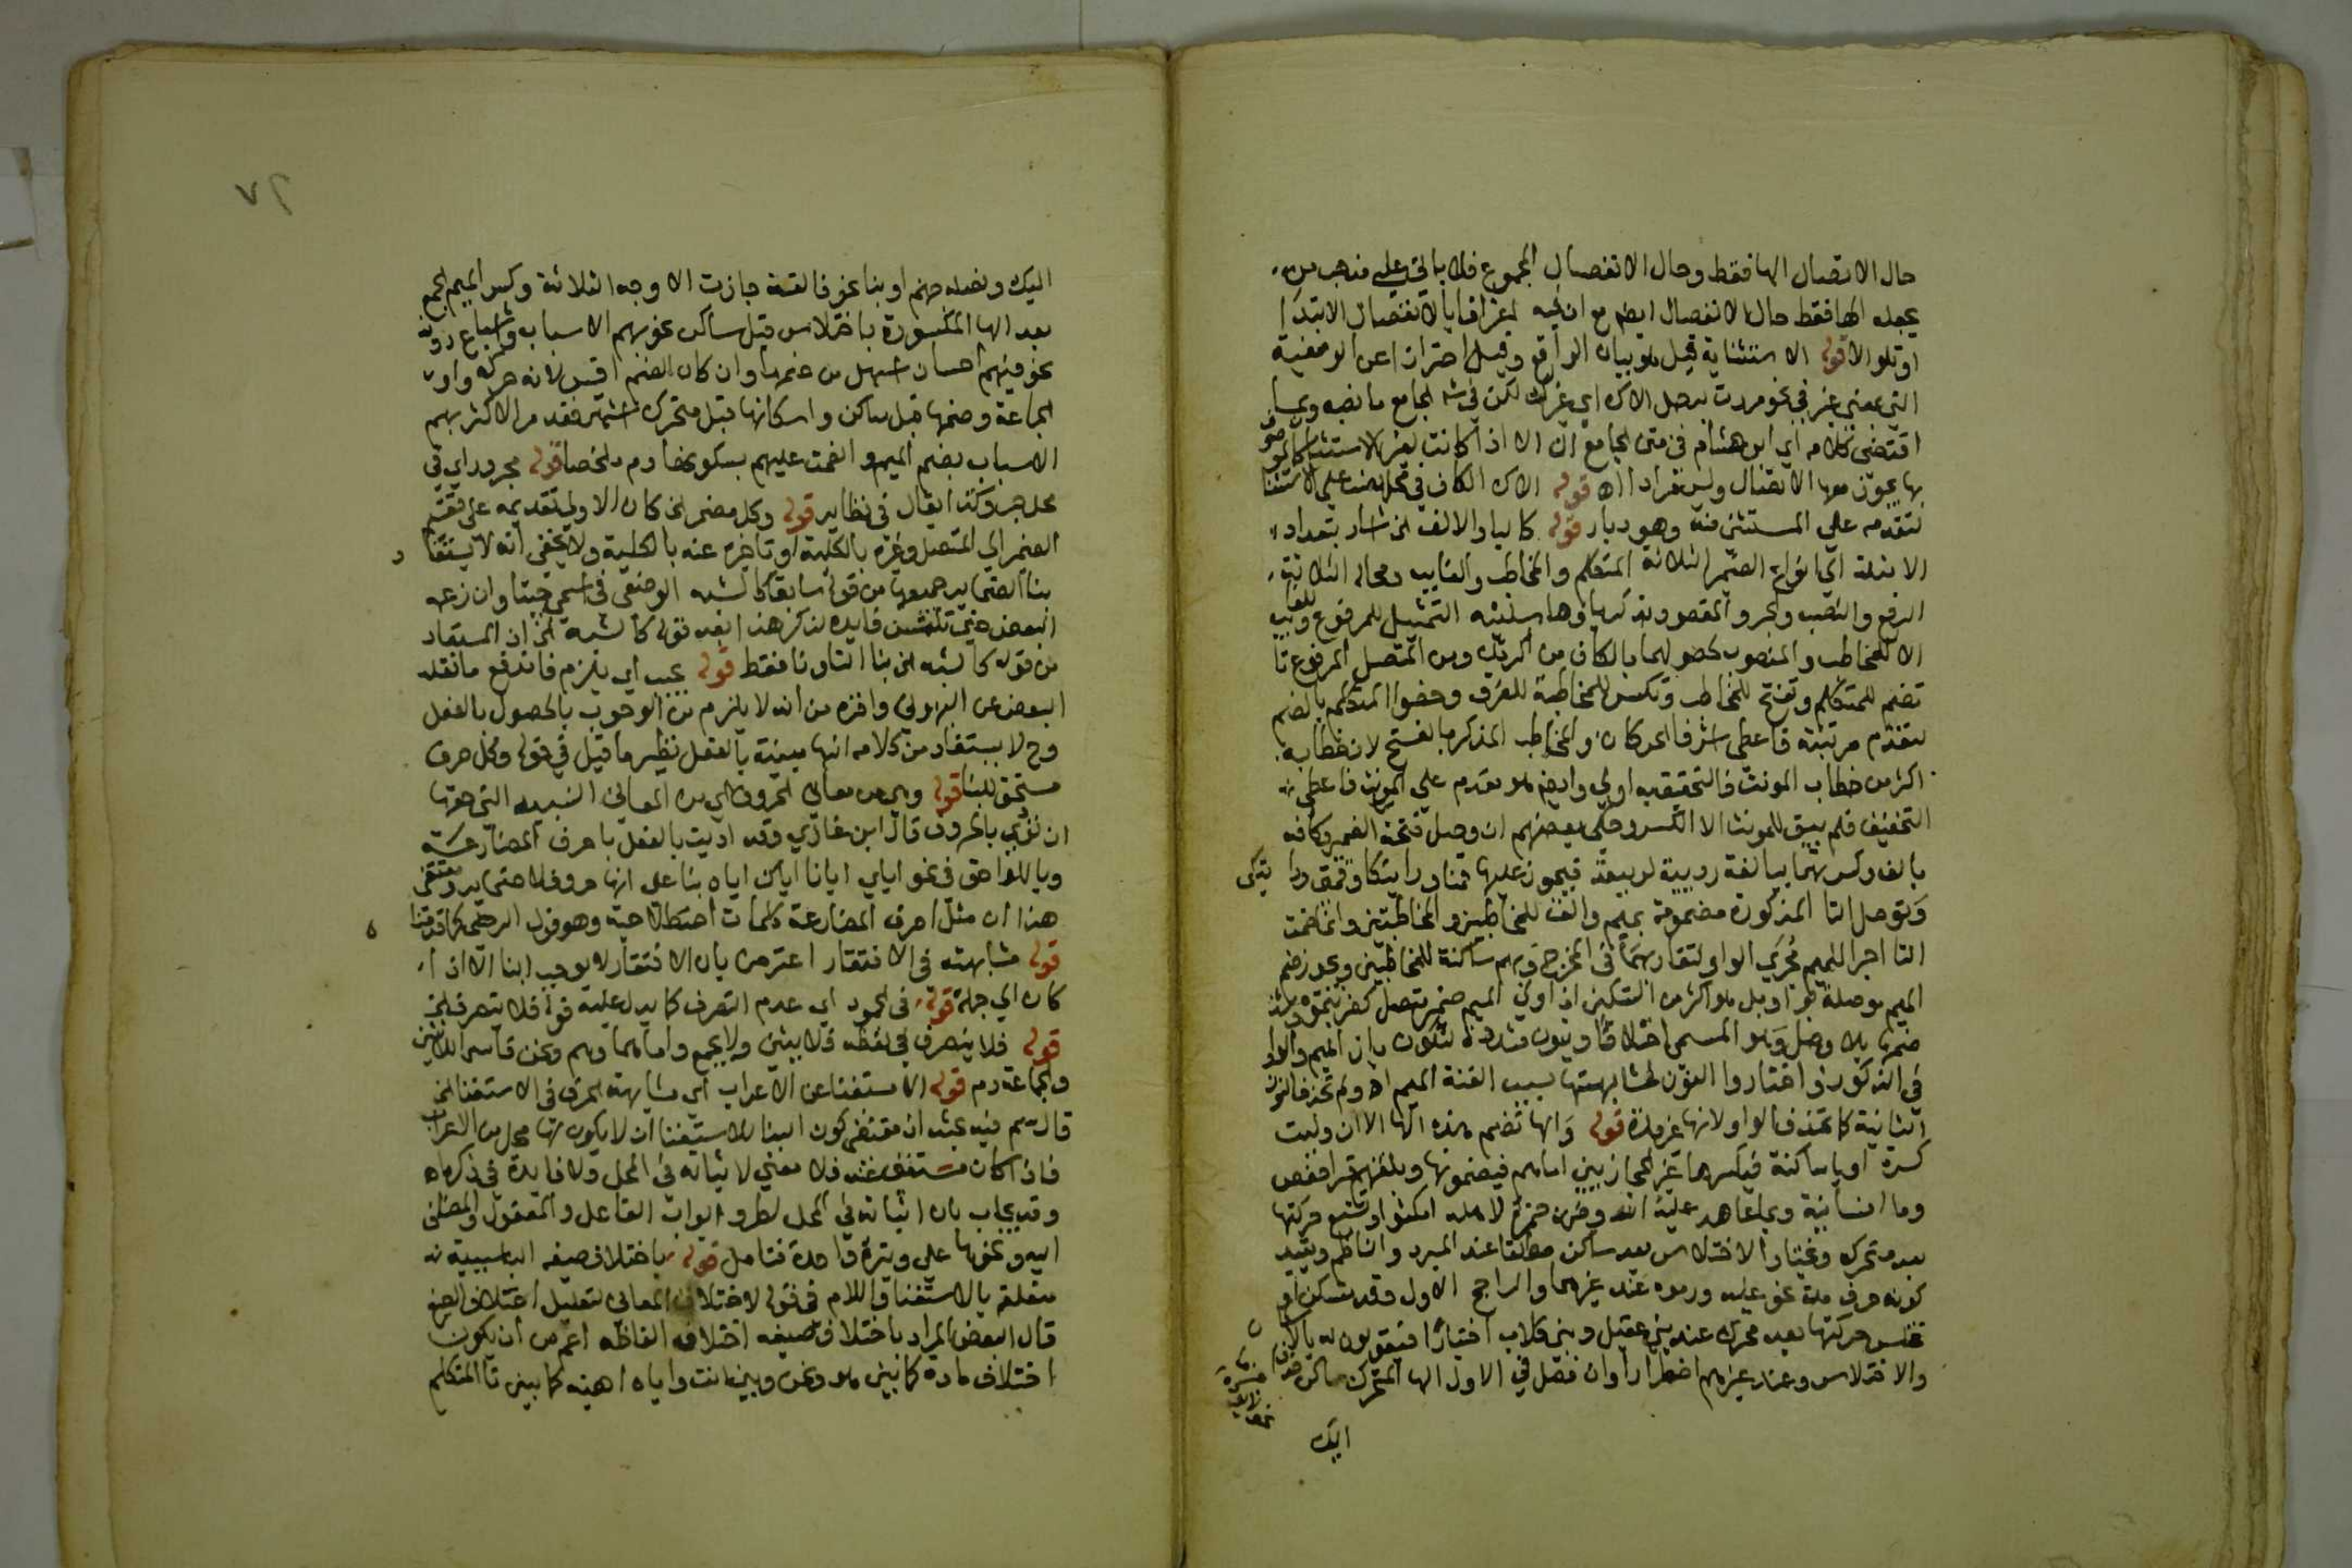 حال الاتصال الها فقط وحال الانفصال المجموع فلا ياتي علي مذهب من
يجعله الها فقط حال الانفصال ايضا مع ان فيه اعترافا بالانفصال الابتدا
او تلو الا قوله الاستثنائية قيل هو بيان الواقع وقيل احترازا عن الوصفية
التي بمعني غير في نحو مررت برجل الاك اي غيرك لكن في شرح الجامع ما نصه وبما
اقتضى كلامه اي ابن هشام في متن الجامع ان الا اذا كانت لغير الاستثنا كالموصوف
بها يجوز معها الاتصال وليس مرادا اه قوله الاك الكاف في محل نصب علي الاستثنا
لتقدمه علي المستثنى منه وهو ديار قوله كاليا والالف الخ اشار بتعداد
الامثلة الي انواع الضمير الثلاثة المتكلم والمخاطب والغايب ومحاله الثلاثة
الرفع والنصب والجر والمقصود بذكرها وها سلنيه التمثيل للمرفوع
الا للمخاطب والمنصوب لحصولهما بالكاف من اكرمك ومن المتصل المرفوع تا
تضم للمتكلم وتفتح للمخاطب وتكسر للمخاطبة للفرق وخصوا المتكلم بالضم
لتقدم مرتبته فاعطى اشرف الحركات والمخاطب المذكر بالفتح لان خطابه
اكثر من خطاب المونث فالتخفيف به اولي وايضا هو مقدم علي المونث فاعطى
التخفيف فلم يبق للمونث الا الكسر وحكى بعضهم ان وصل فتحة الضمير وكافه
بالف وكسرتهما بيا لغة ربيعة
وتوصل التا المذكورة مضمومة بميم والف للمخاطبين والمخاطبتين وانما ضمت
التا اجرا للميم مجرى الواو لتقاربهما في المخرج وبميم ساكنة للمخاطبين ويجوز ضم
الميم موصلة بواو بل هو اكثر من التسكين اذا ولي الميم ضمير متصل
ضمها بلا وصل وهو المسمى اختلاسا وبنون مشددة لتكون بازا الميم والواو
في الذكور واختاروا النون لمشابهتها بسبب الغنة الميم اه ولم تحذف النون
الثانية كما تحذف الواو لانها غير مدة قوله والها تضم هذه الها الا ان وليت
كسرة او يا ساكنة فيكسرها غير الحجازيين اما هم فيضمونها وبلغتهم قرا حفص
وما انسانيه وبما عاهد عليه الله وحمزة لاهله امكثوا وتشبع حركتها
بعد متحرك ويختار الاختلاس بعد ساكن مطلقا عند المبرد والناظم وبقيد
كونه حرف مدة نحو عليه ورموه عند غيرهما والراجح الاول وقد تسكن او
تختلس حركتها بعد محرك عند بني عقيل وبني كلاب اختيارا فيقولون له بالاسكان
والاختلاس وعند غيرهم اضطرارا وان فصل في الاول الها المتحرك ساكن حذف
اليك
٧٢
اليك ونصله جهنم او بنا نحو فالقه جازت الاوجه الثلاثة وكسر الميم الجمع
بعد الها المكسورة باختلاس قبل ساكن نحو بهم الاسباب واشباع دونه
نحو فيهم احسان اسهل من ضمها وان كان الضم اقيس لانه حركة واو
الجماعة وضمها قبل ساكن واسكانها قبل متحرك اشهر فقد قرا الاكثر بهم
الاسباب بضم الميم وانعمت عليهم بسكونها دم ملخصا قوله مجرور اي في
محل جر وكذا يقال في نظايره قوله وكل مضمر الخ كان الاولى تقديمه على تقسيم
الضمير الي المتصل وغيره بالكلية او تاخيره عنه بالكلية ولا يخفى انه لا يستفاد
بنا الضماير جميعها من قوله سابقا كالشبه الوضعي في اسمي جئتنا وان زعمه
البعض حتي فايدة لذكر هذا بعد قوله كالشبه الخ اذ المستفاد
من قوله كالشبه الخ بنا التا ونا فقط قوله يجب اي يلزم فاندفع ما نقله
البعض عن البهوتي واقره من انه لا يلزم من الوجوب بالحصول بالفعل
وح لا يستفاد من كلامه انها مبنية بالفعل نظير ما قيل في قوله وكل حرف
مستحق للبنا قوله وهي من معاني الحروف اي من المعاني النسبية التي حقها
ان تؤدي بالحروف قال ابن غازي وقد اديت بالفعل باحرف المضارعة
وباللواحق في نحو اياي ايانا اياك اياه بنا على انها حروف لا ضماير ومقتضى
هذا ان مثل احرف المضارعة كلمات اصطلاحية وهو قول الرضي كما قدمنا
قوله مشابهته في الافتقار اعترض بان الافتقار لا يوجب البنا الا اذا
كان الي جملة قوله في الجمود اي عدم التصرف كما يدل عليه قوله فلا يتصرف الخ
قوله فلا يتصرف في لفظه فلا يثنى ولا يجمع واما هما وهم ونحن فاسما للاثنين
والجماعة دم قوله الاستغنا عن الاعراب اي مشابهته الحرف في الاستغنا الخ
قال سم فيه بحث ان مقتضى كون البنا للاستغنا ان لا يكون لها محل من الاعراب
فاذا كان مستغنى عنه فلا معنى لاثباته في المحل ولا فايدة في ذكره اه
وقد يجاب بان اثباته في المحل لطرد ابواب الفاعل والمفعول والمضاف
اليه ونحوها علي وتيرة واحدة فتامل قوله باختلاف صيغه البا سببية
متعلقة بالاستغنا واللام في قوله لاختلاف المعاني لتعليل اختلاف الصيغ
قال البعض المراد باختلاف صيغه اختلاف الفاظه اعم من ان يكون
اختلاف مادة كما بين هو ونحن وبين انت واياه او هيئة كما بين تا المتكلم